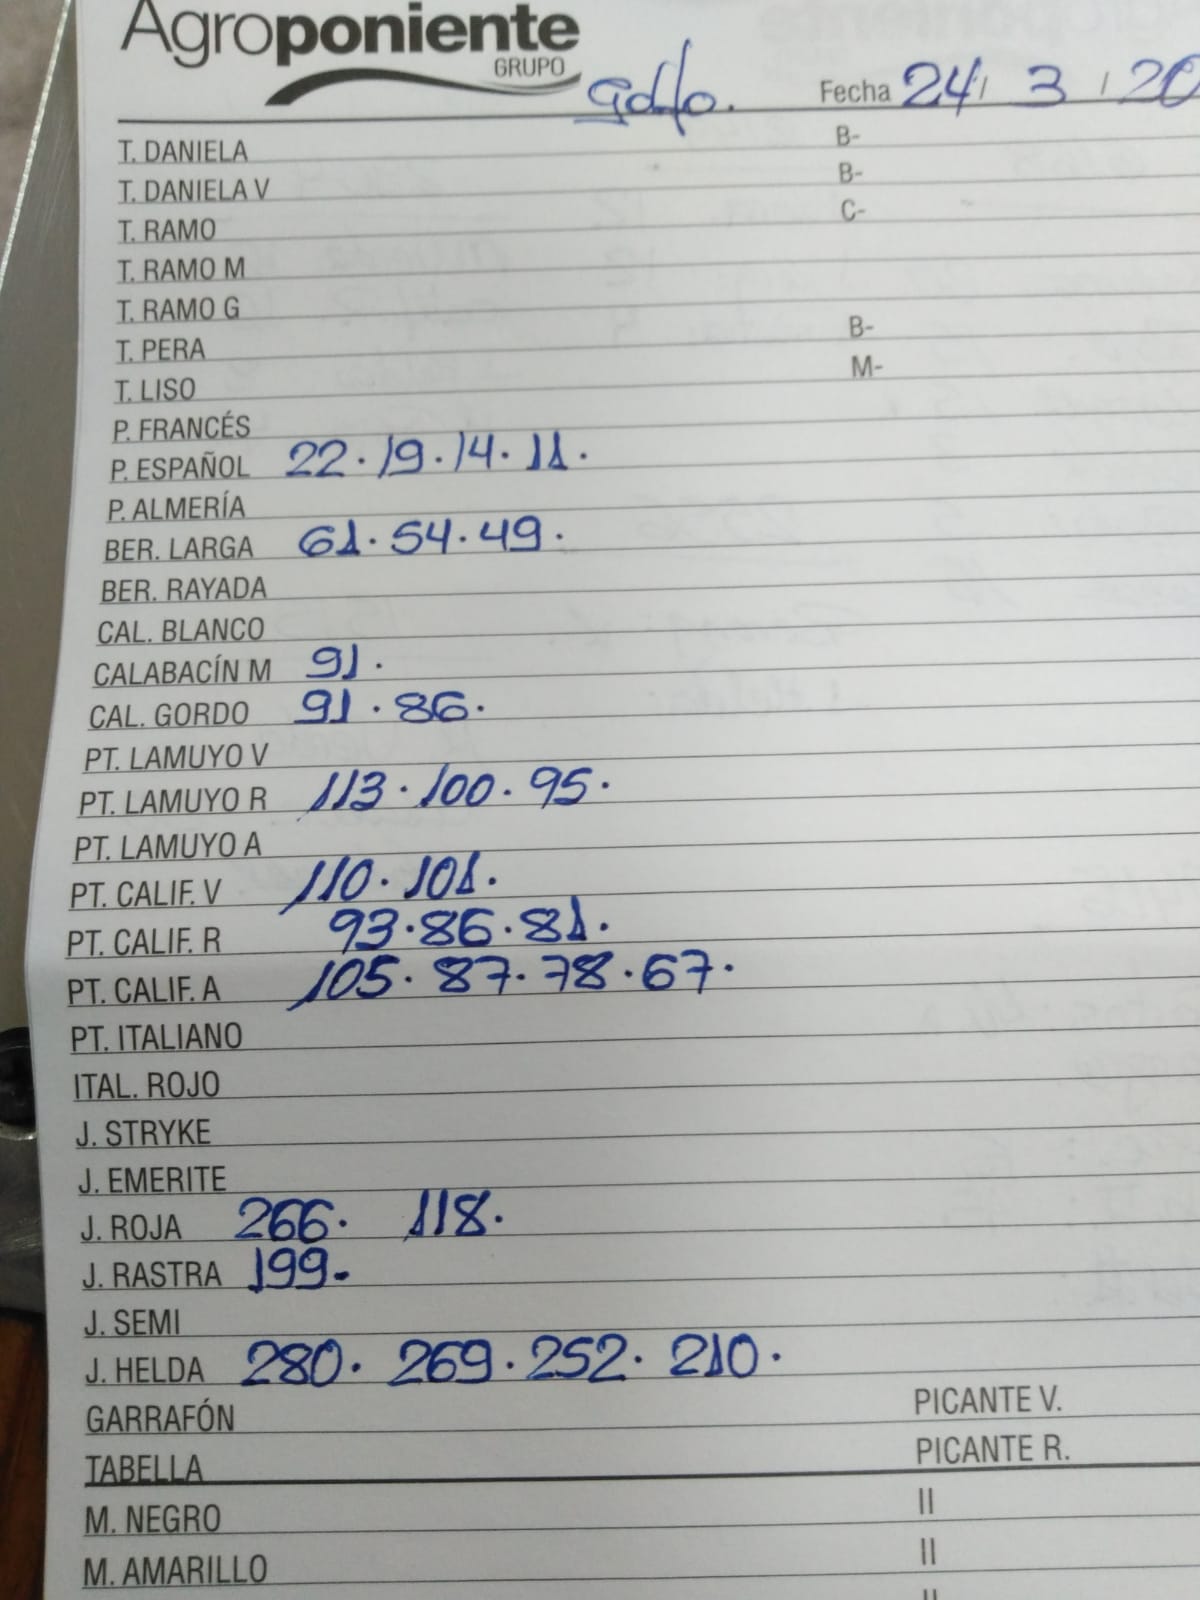 Agroponiente
GRUPO
Fecha 24/ 3 / 20
T. DANIELA B-
T. DANIELA V B-
T. RAMO C-
T. RAMO M
T. RAMO G
T. PERA B-
T. LISO M-
P. FRANCÉS
P. ESPAÑOL 22. 19. 14. 11.
P. ALMERÍA
BER. LARGA 61. 54. 49.
BER. RAYADA
CAL. BLANCO
CALABACÍN M 91.
CAL. GORDO 91. 86.
PT. LAMUYO V
PT. LAMUYO R 113. 100. 95.
PT. LAMUYO A
PT. CALIF. V 110. 101.
PT. CALIF. R 93. 86. 81.
PT. CALIF. A 105. 87. 78. 67.
PT. ITALIANO
ITAL. ROJO
J. STRYKE
J. EMERITE
J. ROJA 266. 118.
J. RASTRA 199.
J. SEMI
J. HELDA 280. 269. 252. 210.
GARRAFÓN PICANTE V.
TABELLA PICANTE R.
M. NEGRO II
M. AMARILLO II